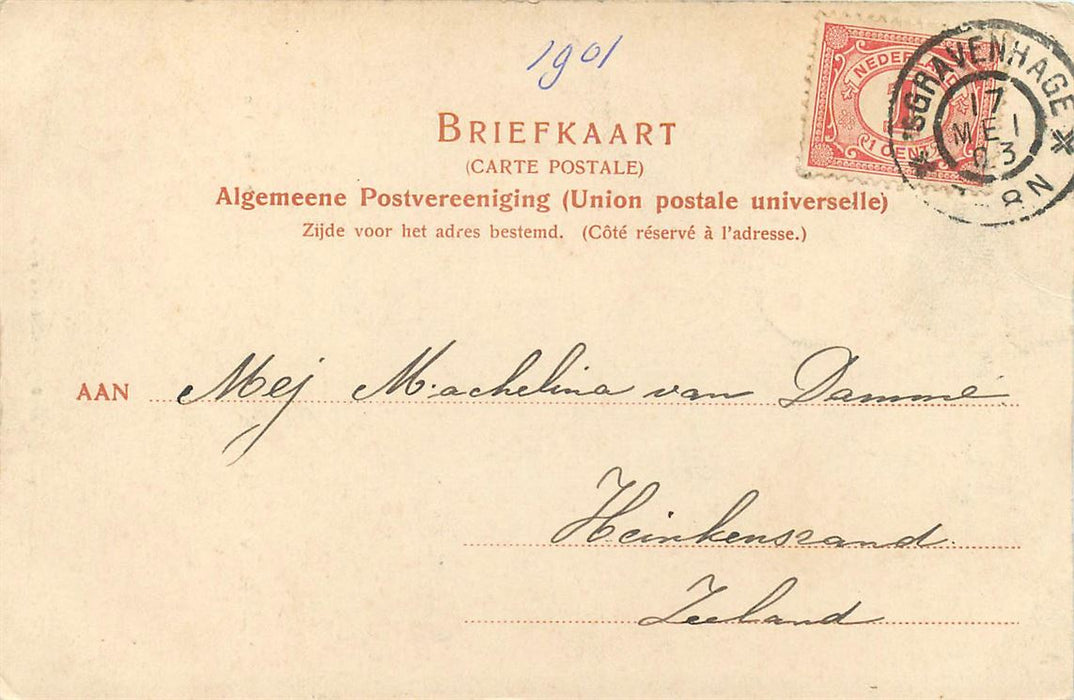 1901
NEDER
1
1 CENT
'SGRAVENHAGE
17
MEI
03
8N
BRIEFKAART
(CARTE POSTALE)
Algemeene Postvereeniging (Union postale universelle)
Zijde voor het adres bestemd. (Côté réservé à l'adresse.)
AAN Mej Machelina van Damme
Heinkenszand
Zeeland